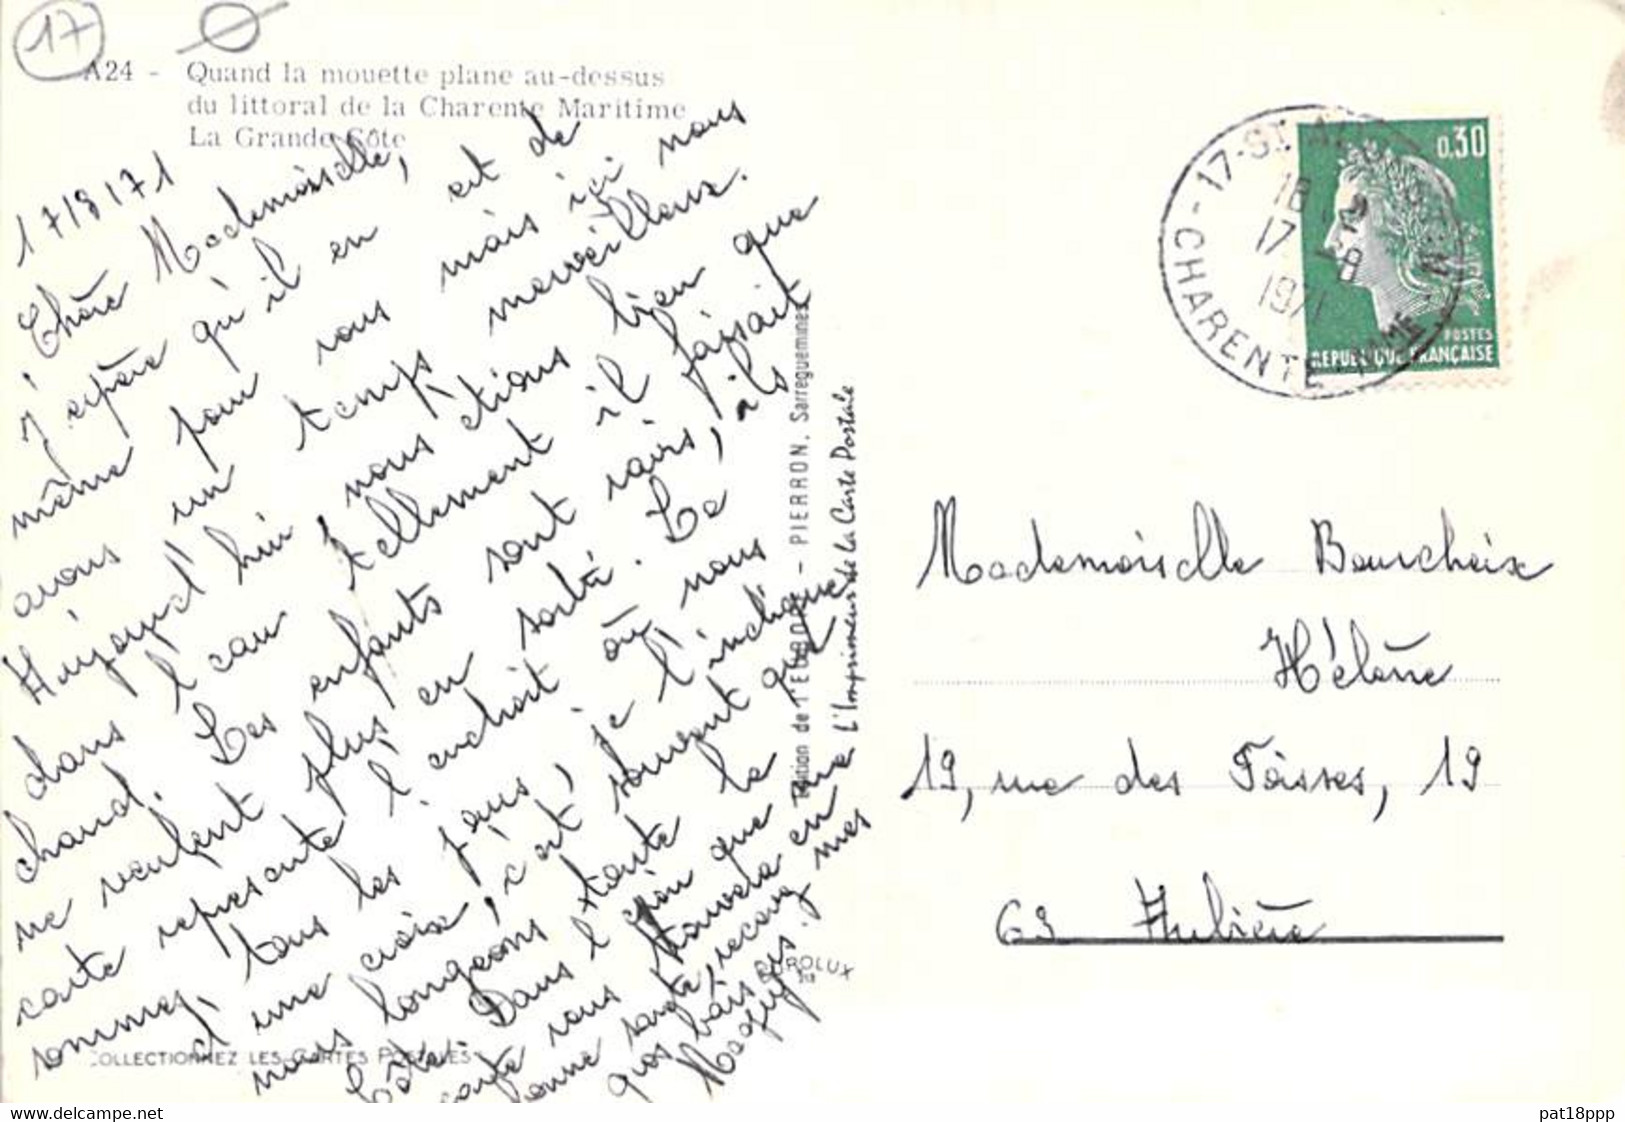 17
A24 - Quand la mouette plane au-dessus
du littoral de la Charente Maritime
La Grande Côte
17/8/71
Chère Mademoiselle,
J'espère qu'il en est de
même pour vous mais ici nous
avons un temps merveilleux.
Aujourd'hui nous étions bien que
dans l'eau tellement il faisait
chaud. Les enfants sont ravis, ils
ne veulent plus en sortir. La
carte représente l'endroit où nous
sommes, tous les jours, je l'indique
d'une croix, c'est souvent que
nous longeons toute la
Côte. Dans l'espoir que ma
carte vous trouvera en
bonne santé, recevez mes
gros baisers.
Maguy
Edition de l'EUROPE - PIERRON, Sarreguemines
L'Imprimeur de la Carte Postale
EUROLUX
COLLECTIONNEZ LES CARTES POSTALES
17 - ST AUGUSTIN
18 H
17 - 8
1971
CHARENTE MME
0,30
POSTES
REPUBLIQUE FRANÇAISE
Mademoiselle Bourcheix
Hélène
19, rue des Fòisses, 19
63 Aubière
pat18ppp